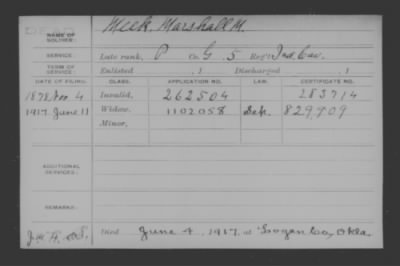 NAME OF SOLDIER: Meek, Marshall M.
SERVICE: Late rank, P Co. G, 5 Reg't Ind. Cav.
TERM OF SERVICE: Enlisted , 1 Discharged , 1
DATE OF FILING. CLASS. APPLICATION NO. LAW. CERTIFICATE NO.
1878 Nov 4 Invalid, 262504 283714
1917 June 11 Widow, 1102058 829909
Minor,
ADDITIONAL SERVICES:
REMARKS:
Died June 4, 1917, at Logan Co, Okla